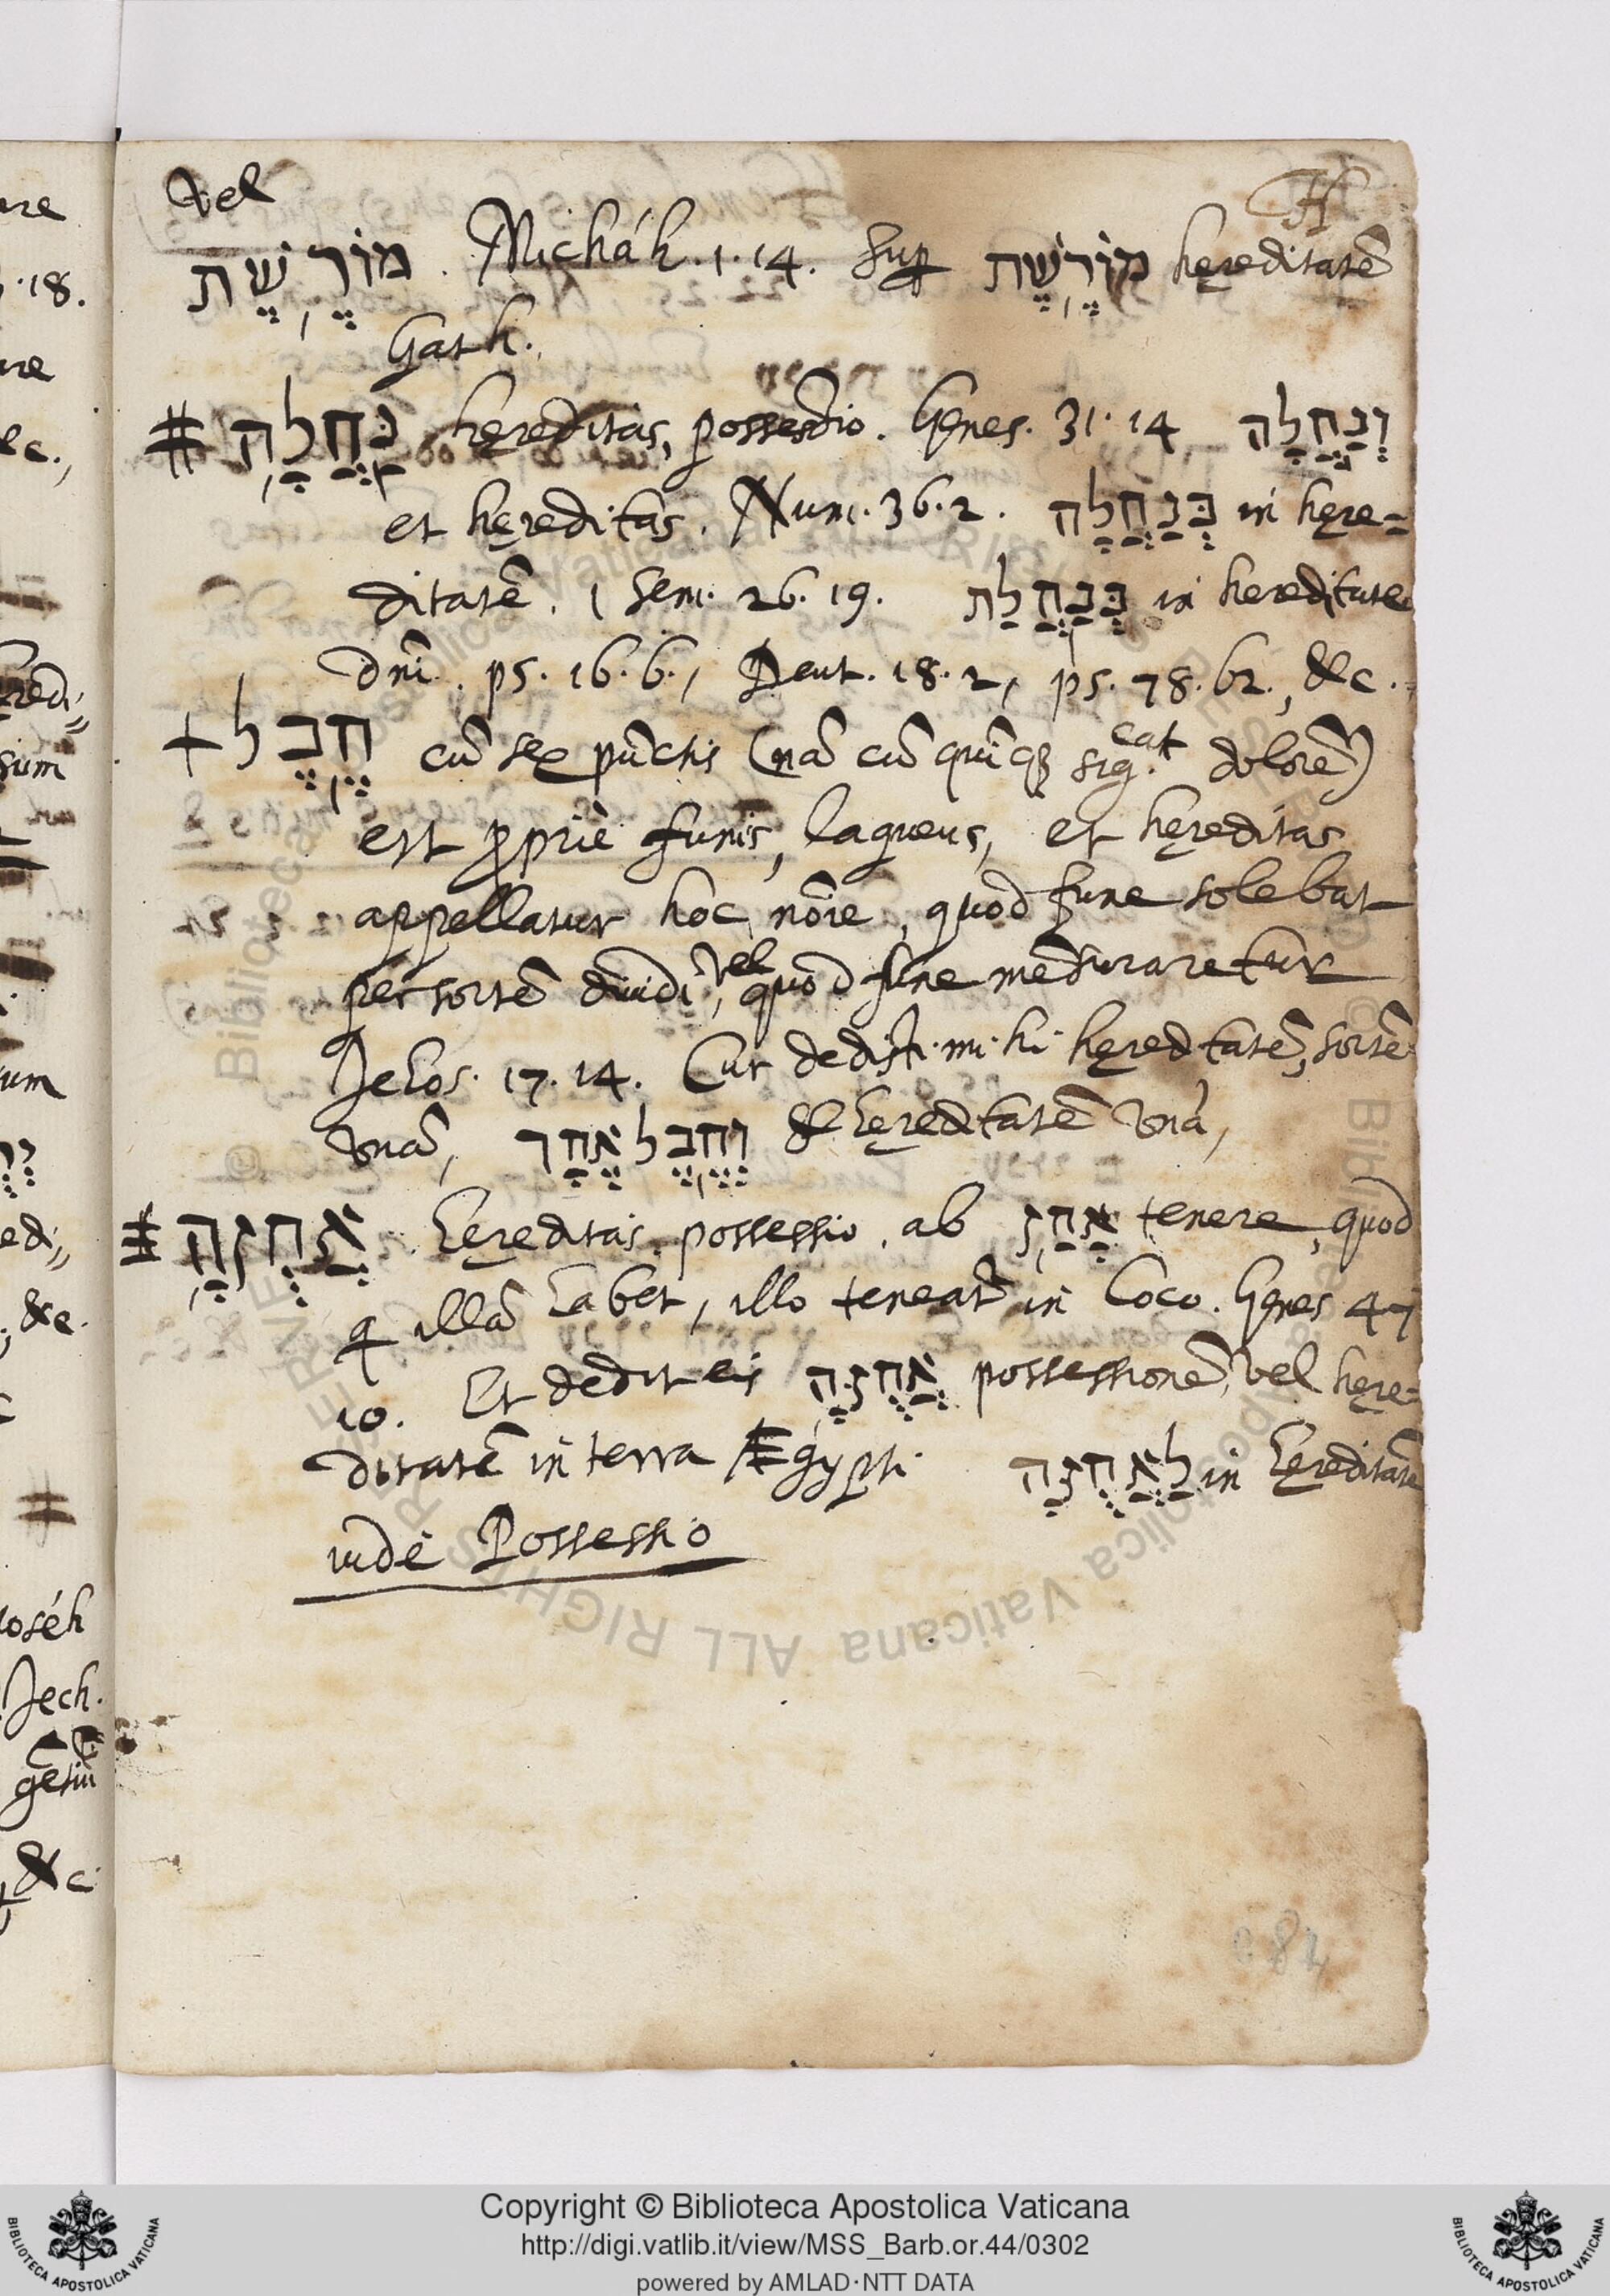 Vel
H
מוֹרֶשֶׁת . Micháh. 1. 14. Sup מוֹרֶשֶׁת hęreditatē
Gath.
נַחֲלָה hęreditas, possessio. Genes. 31. 14 וְנַחֲלָה
et hęreditas. Num. 36. 2. בְּנַחֲלָה in hęre=
ditatē. 1 Sem. 26. 19. בְּנַחֲלַת in hereditate
dn̄i. ps. 16. 6., Deut. 18. 2, ps. 78. 62., &c.
+ חֶבֶל cū sex pūctis (nā cū quīq3 sig.cat dolorē)
est ꝓpriè funis, laqueus, et hęreditas
appellatur hoc nōie, quod fune solebat
per sortē diuidi, vel quod fune mēsuraretur
Jehos. 17. 14. Cur dedisti mihi hęreditatē, sortē
vnā, וְחֶבֶל אֶחָד & hęreditatē vnā,
אֲחֻזָּה hęreditas, possessio, ab אָחַז tenere, quod
q illā habet, illo teneatr in loco. Genes 47
10. Et dedit eis אֲחֻזָּה possessionē, vel hęre=
ditatē in terra Ægypti. לַאֲחֻזָּה in hęreditatē
uide Possessio
ure
.18.
ure
&c.,
sum
um
edi
&c.
Joséh
Jech.
&c.
Copyright © Biblioteca Apostolica Vaticana
http://digi.vatlib.it/view/MSS_Barb.or.44/0302
powered by AMLAD·NTT DATA
BIBLIOTECA APOSTOLICA VATICANA
BIBLIOTECA APOSTOLICA VATICANA